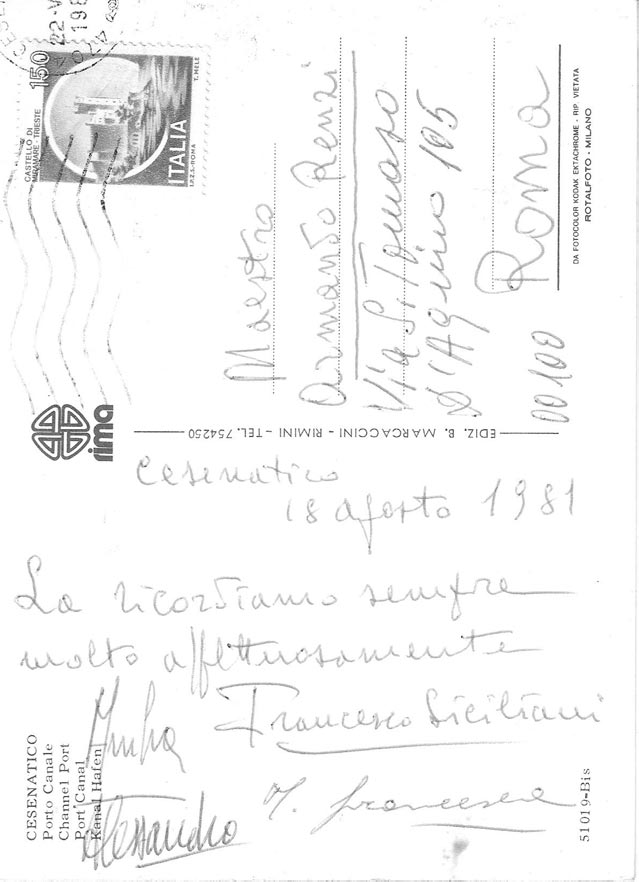 Cesenatico
18 agosto 1981
La ricordiamo sempre
molto affettuosamente
Francesco Siciliani
Alessandro
M. Francesca
CESENATICO
Porto Canale
Channel Port
Port Canal
Kanal Hafen
51019-Bis
rima
EDIZ. B. MARCACCINI - RIMINI - TEL. 754250
22-V
198
150
CASTELLO DI
MIRAMARE - TRIESTE
ITALIA
I.P.Z.S.-ROMA
T. MELE
Maestro
Armando Renzi
Via S. Tomaso
D'Aquino 105
00100 Roma
DA FOTOCOLOR KODAK EKTACHROME - RIP. VIETATA
ROTALFOTO - MILANO